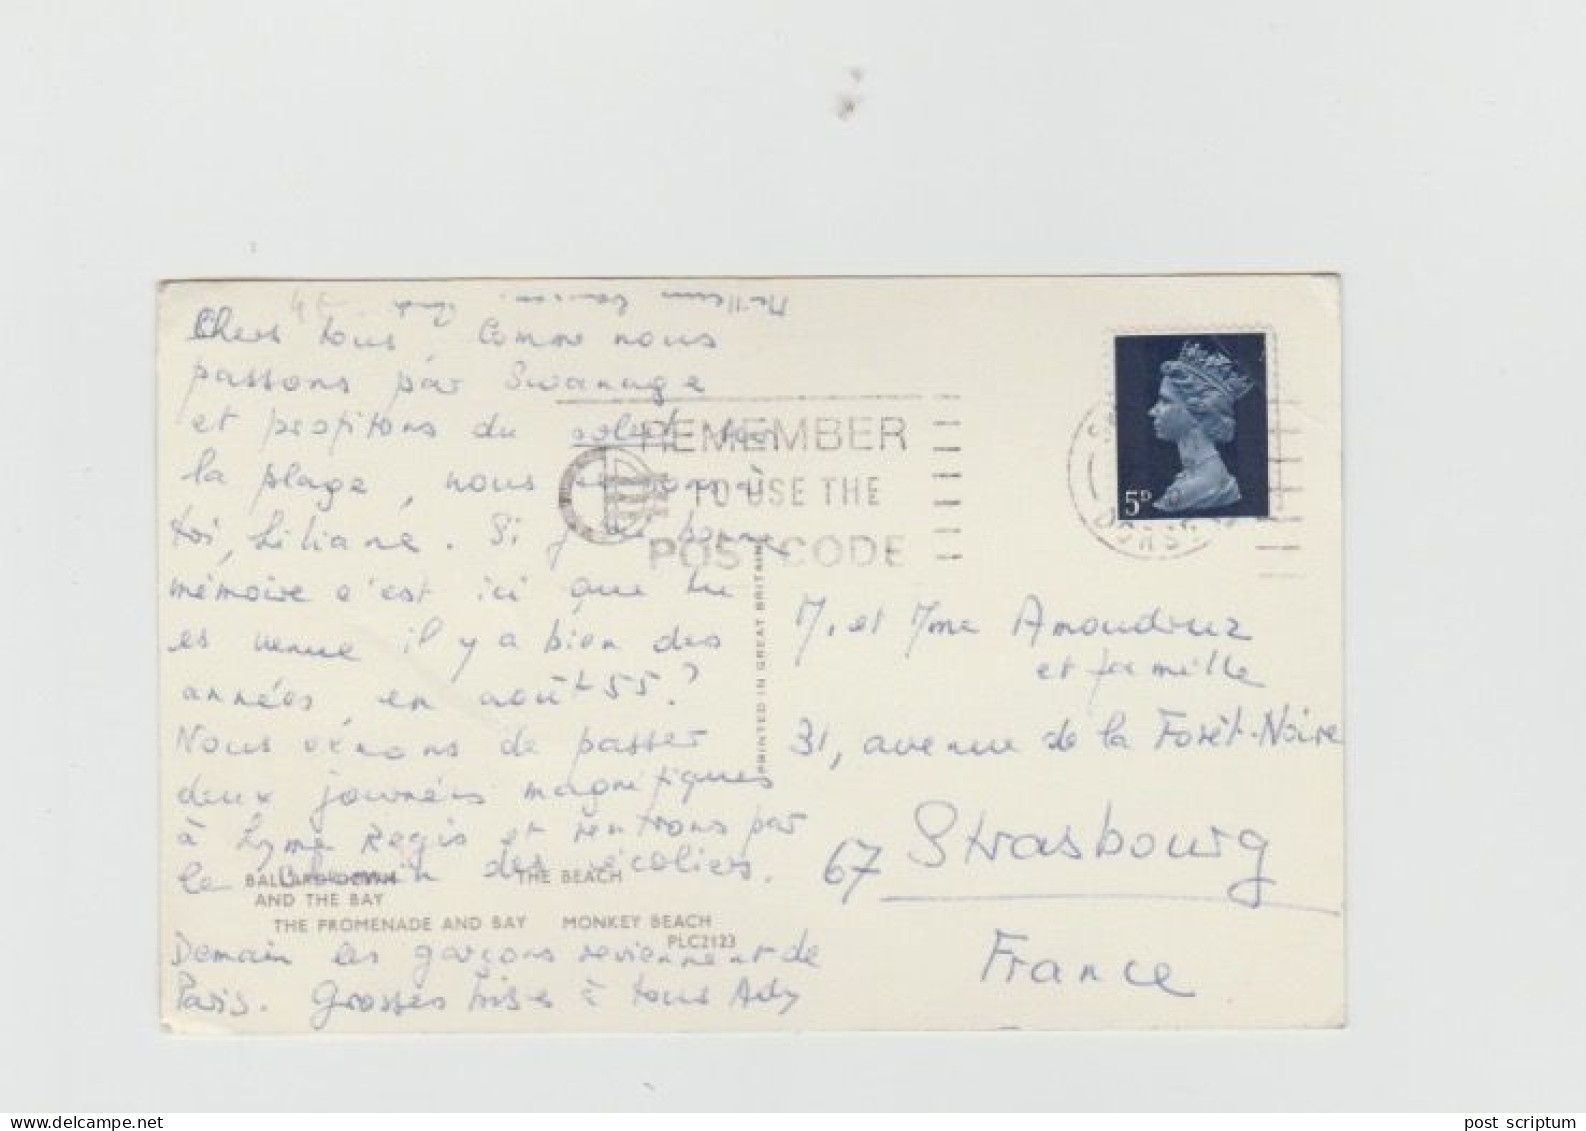 Chers tous, Comme nous
passons par Swanage
et profitons du soleil sur
la plage, nous pensons à
toi, Liliane. Si j'ai bonne
mémoire c'est ici que tu
es venue il y a bien des
années, en août 55?
Nous venons de passer
deux journées magnifiques
à Lyme Regis et rentrons par
le chemin des écoliers.
Demain les garçons reviennent de
Paris. Grosses bises à tous Ady
BALLARD DOWN
AND THE BAY
THE BEACH
THE PROMENADE AND BAY MONKEY BEACH
PLC2123
PRINTED IN GREAT BRITAIN
REMEMBER
TO USE THE
POST CODE
DORSET
5D
M. et Mme Amoudruz
et famille
31, avenue de la Forêt-Noire
67 Strasbourg
France
post scriptum
www.delcampe.net